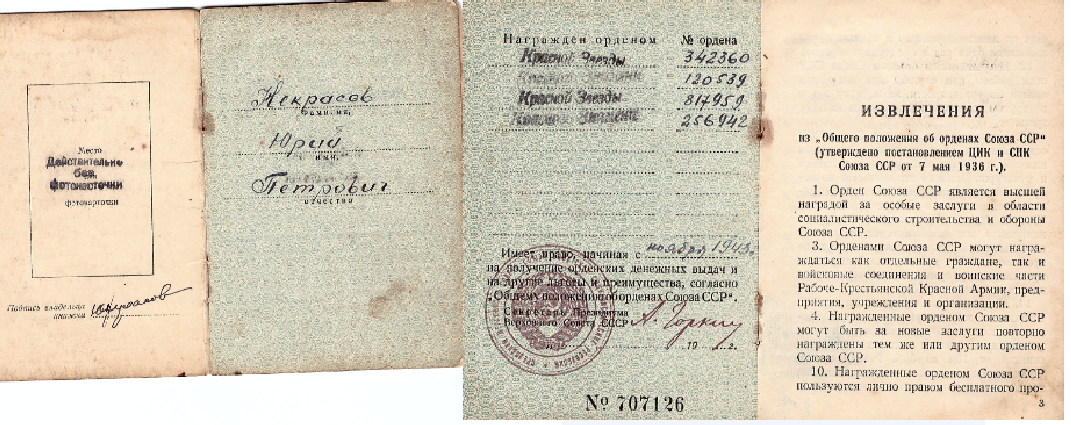 Место
Действительно
без
фотокарточки
фотокарточки
Подпись владельца
книжки
Некрасов
фамилия,
Юрий
имя,
Петрович
отчество
Награжден орденом № ордена
Красной Звезды 342360
120539
Красной Звезды 817959
256942
Имеет право, начиная с ноября 1943 г.
на получение орденских денежных выдач и
на другие льготы и преимущества, согласно
„Общему положению об орденах Союза ССР".
Секретарь Президиума
Верховного Совета СССР А. Горкин
19 г.
№ 707126
ИЗВЛЕЧЕНИЯ
из „Общего положения об орденах Союза ССР"
(утверждено постановлением ЦИК и СНК
Союза ССР от 7 мая 1936 г.).
1. Орден Союза ССР является высшей
наградой за особые заслуги в области
социалистического строительства и обороны
Союза ССР.
3. Орденами Союза ССР могут награ-
ждаться как отдельные граждане, так и
войсковые соединения и воинские части
Рабоче-Крестьянской Красной Армии, пред-
приятия, учреждения и организации.
4. Награжденные орденом Союза ССР
могут быть за новые заслуги повторно
награждены тем же или другим орденом
Союза ССР.
10. Награжденные орденом Союза ССР
пользуются лично правом бесплатного про-
3